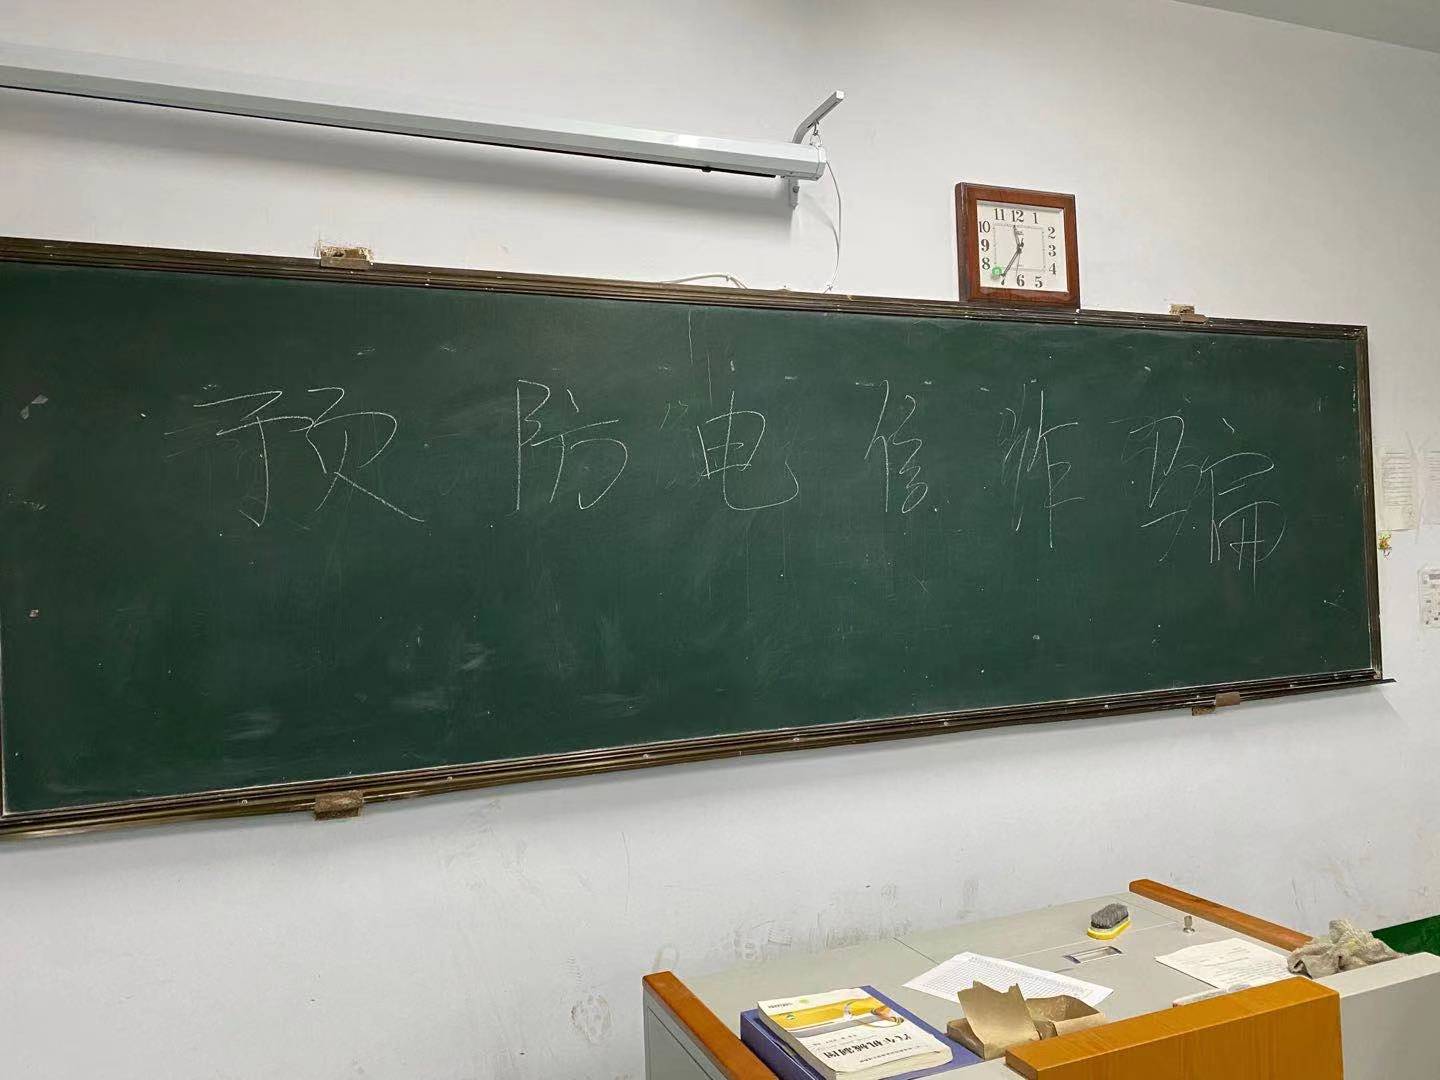 预防电信诈骗
11 12 1
10 2
9 3
8 4
7 6 5
汽车机械制图